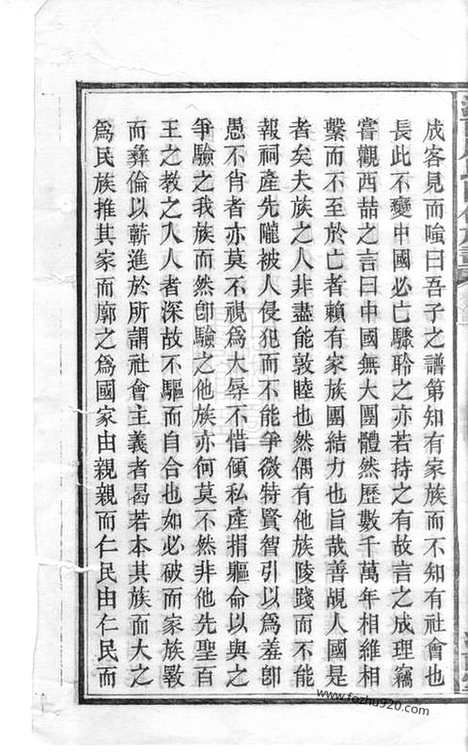 成客見而嗤曰吾子之譜第知有家族而不知有社會也
長此不變中國必亡驟聆之亦若持之有故言之成理竊
嘗觀西喆之言曰中國無大團體然歷數千萬年相維相
繫而不至於亡者賴有家族團結力也旨哉善覘人國是
者矣夫族之人非盡能敦睦也然偶有他族陵踐而不能
報祠產先隴被人侵犯而不能爭微特賢智引以爲羞卽
愚不肖者亦莫不視爲大辱不惜傾私產捐軀命以與之
爭驗之我族而然卽驗之他族亦何莫不然非他先聖百
王之教之入人者深故不驅而自合也如必破而家族斁
而彝倫以蘄進於所謂社會主義者曷若本其族而大之
爲民族推其家而廓之爲國家由親親而仁民由仁民而
www.fozhu920.com